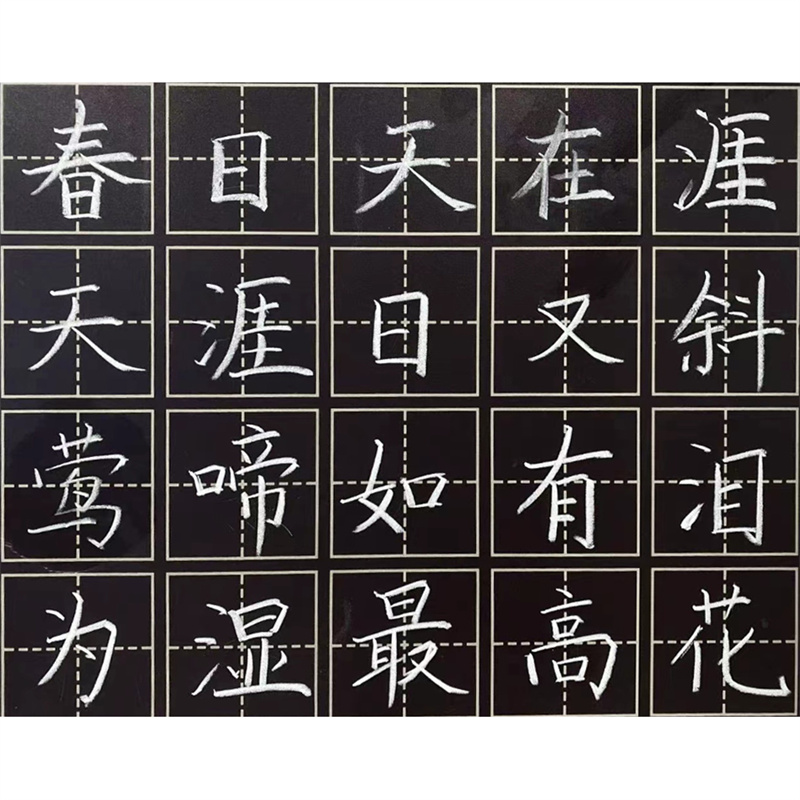 春目天在涯
天涯日又斜
莺啼如有泪
为湿最高花